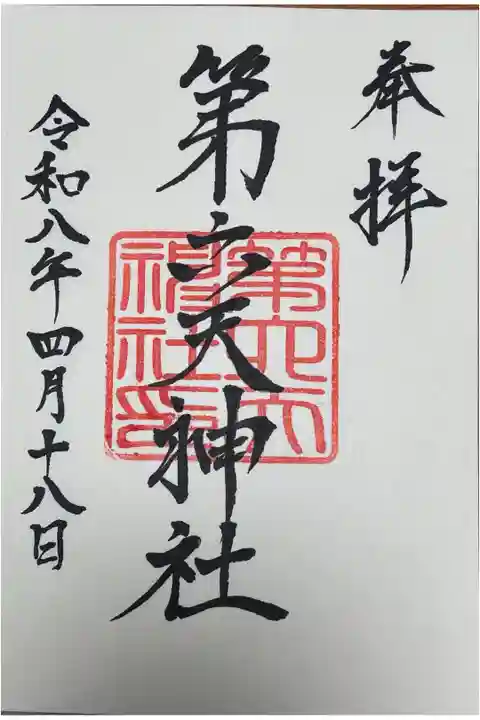 奉拝
第六天神社
令和八年四月十八日
第六天
神社印